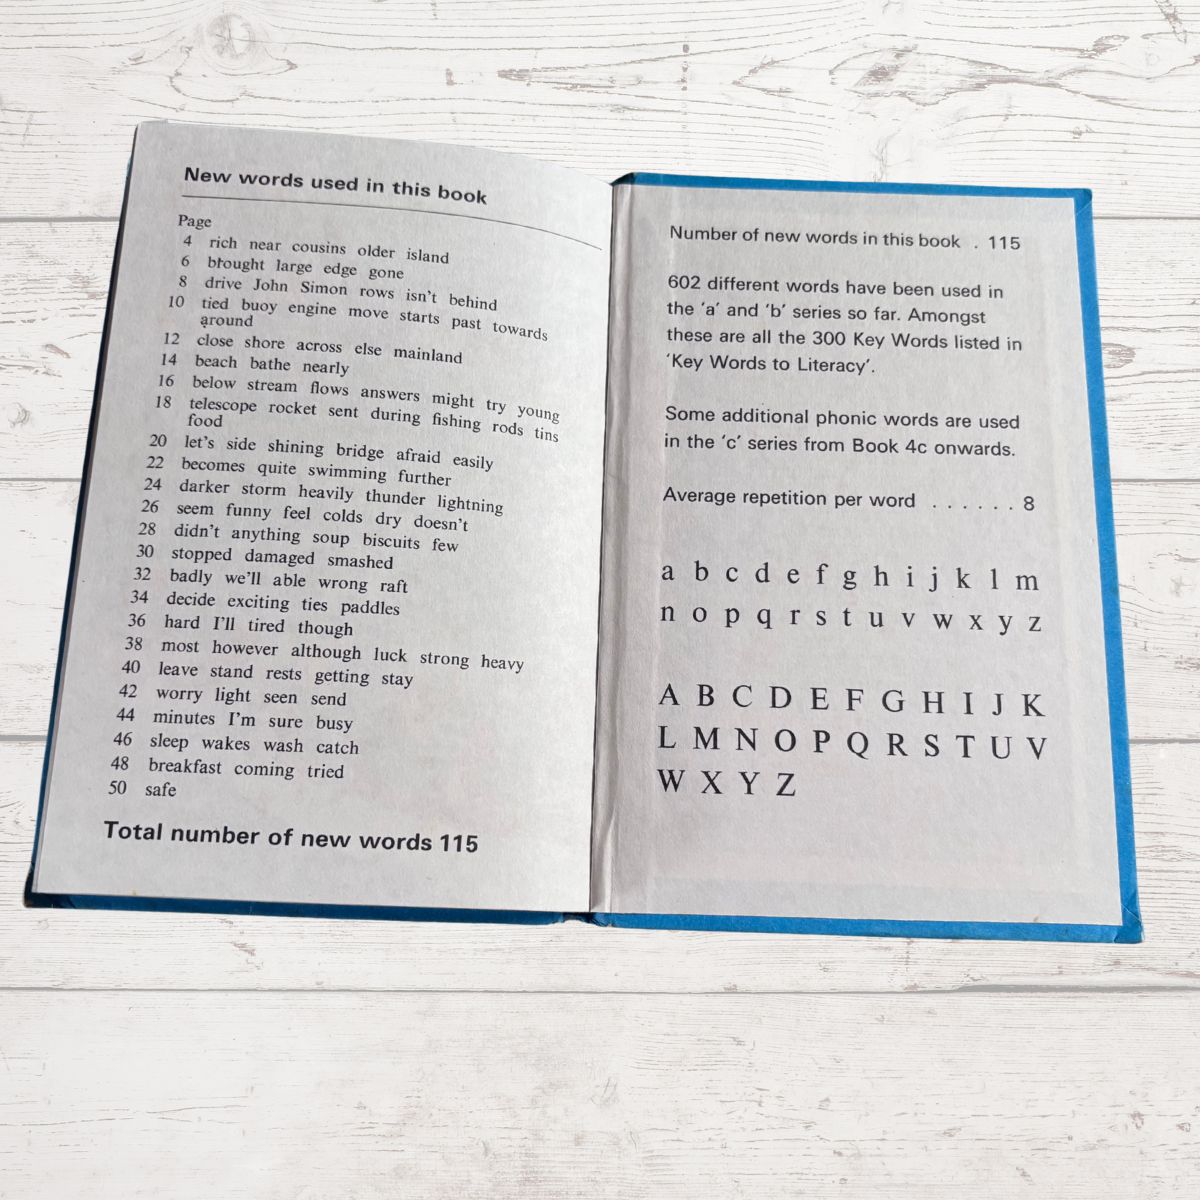 New words used in this book
Page
4 rich near cousins older island
6 brought large edge gone
8 drive John Simon rows isn't behind
10 tied buoy engine move starts past towards
around
12 close shore across else mainland
14 beach bathe nearly
16 below stream flows answers might try young
18 telescope rocket sent during fishing rods tins
food
20 let's side shining bridge afraid easily
22 becomes quite swimming further
24 darker storm heavily thunder lightning
26 seem funny feel colds dry doesn't
28 didn't anything soup biscuits few
30 stopped damaged smashed
32 badly we'll able wrong raft
34 decide exciting ties paddles
36 hard I'll tired though
38 most however although luck strong heavy
40 leave stand rests getting stay
42 worry light seen send
44 minutes I'm sure busy
46 sleep wakes wash catch
48 breakfast coming tried
50 safe
Total number of new words 115
Number of new words in this book . 115
602 different words have been used in
the 'a' and 'b' series so far. Amongst
these are all the 300 Key Words listed in
'Key Words to Literacy'.
Some additional phonic words are used
in the 'c' series from Book 4c onwards.
Average repetition per word . . . . . . 8
a b c d e f g h i j k l m
n o p q r s t u v w x y z
A B C D E F G H I J K
L M N O P Q R S T U V
W X Y Z